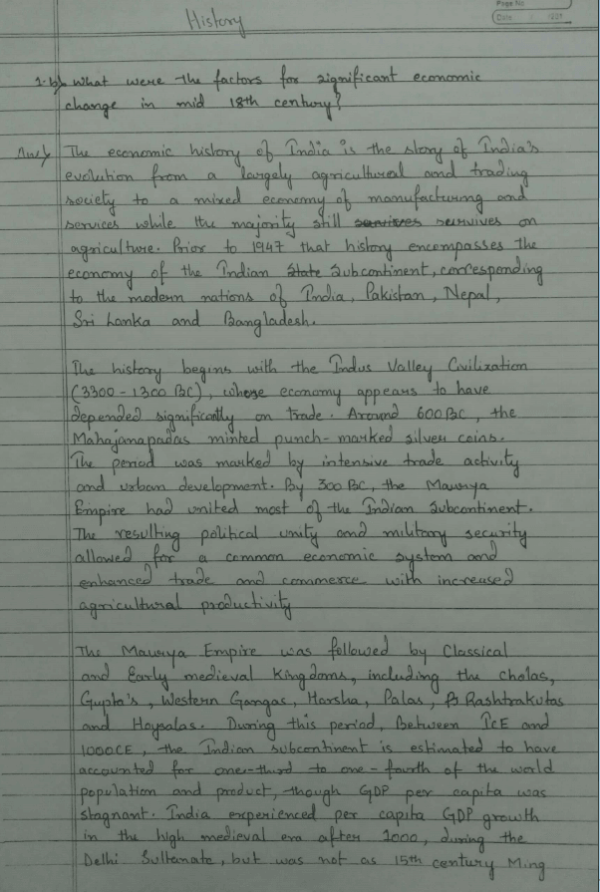 Page No
Date
History
1.b) What were the factors for significant economic
change in mid 18th century?
Ans) The economic history of India is the story of India's
evolution from a largely agricultural and trading
society to a mixed economy of manufacturing and
services while the majority still survives on
agriculture. Prior to 1947 that history encompasses the
economy of the Indian State Subcontinent, corresponding
to the modern nations of India, Pakistan, Nepal,
Sri Lanka and Bangladesh.
The history begins with the Indus Valley Civilization
(3300-1300 BC), whose economy appears to have
depended significantly on trade. Around 600BC, the
Mahajanapadas minted punch-marked silver coins.
The period was marked by intensive trade activity
and urban development. By 300 BC, the Maurya
Empire had united most of the Indian Subcontinent.
The resulting political unity and military security
allowed for a common economic system and
enhanced trade and commerce with increased
agricultural productivity
The Maurya Empire was followed by Classical
and Early medieval kingdoms, including the cholas,
Gupta's, Western Gangas, Harsha, Palas, Rashtrakutas
and Hoysalas. During this period, Between 1CE and
1000CE, the Indian subcontinent is estimated to have
accounted for one-third to one-fourth of the world
population and product, though GDP per capita was
stagnant. India experienced per capita GDP growth
in the high medieval era after 1000, during the
Delhi Sultanate, but was not as 15th century Ming